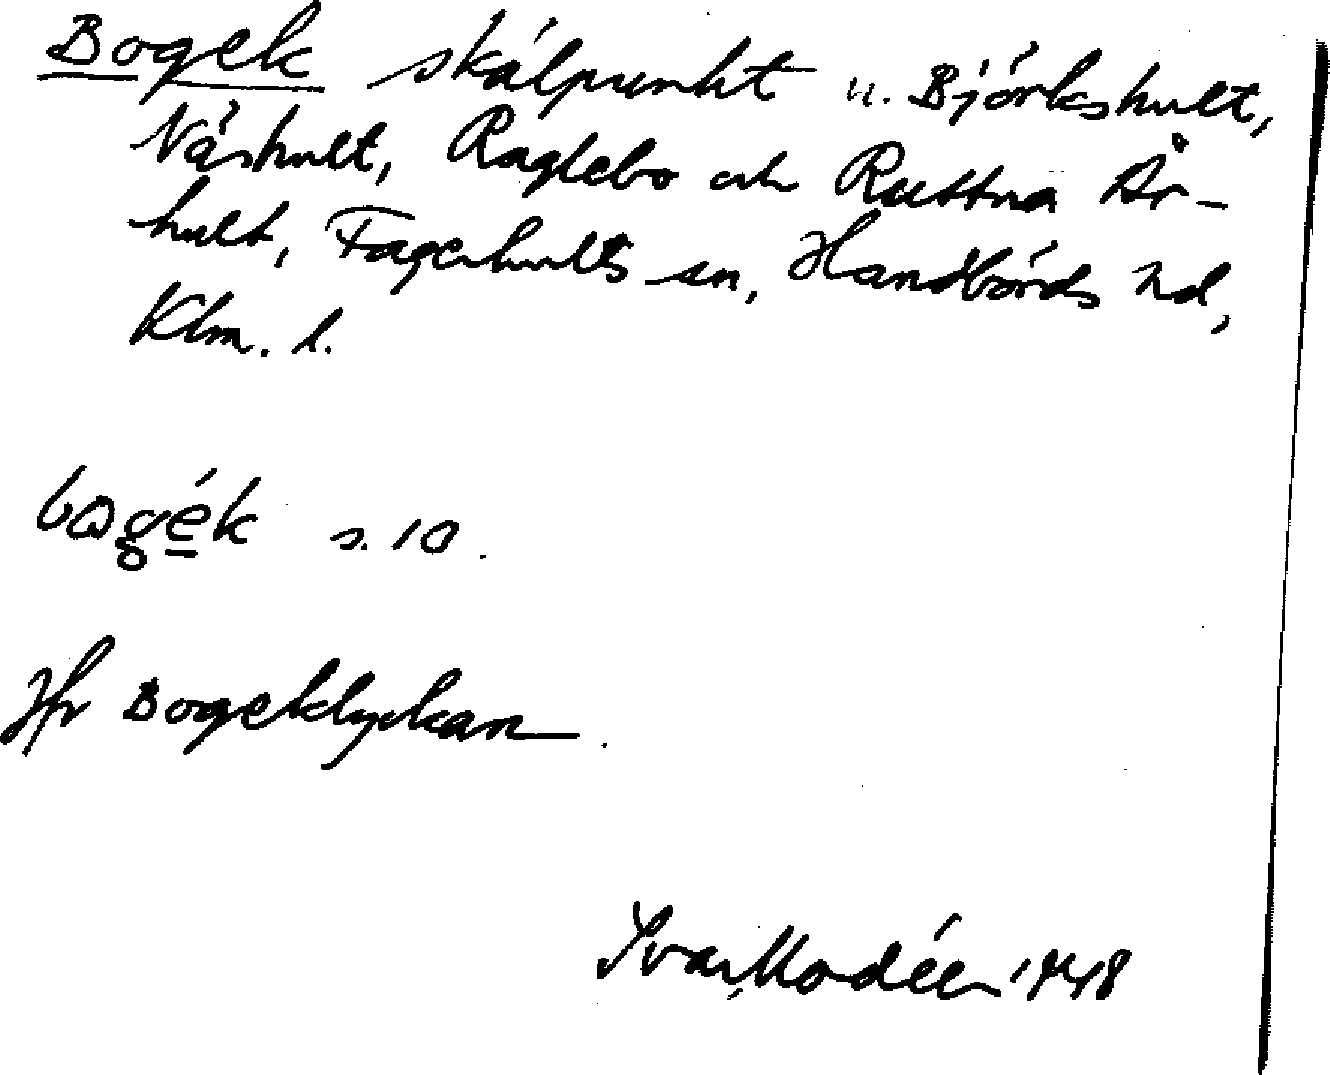 Bogek skälpunkt u. Björkshult,
Näshult, Raglebo och Ruttna År-
hult, Fagerhults sn, Handbörds hd,
Klm. l.
s. 10.
Jfr Bogeklyckan
Ivar Modéer 1948